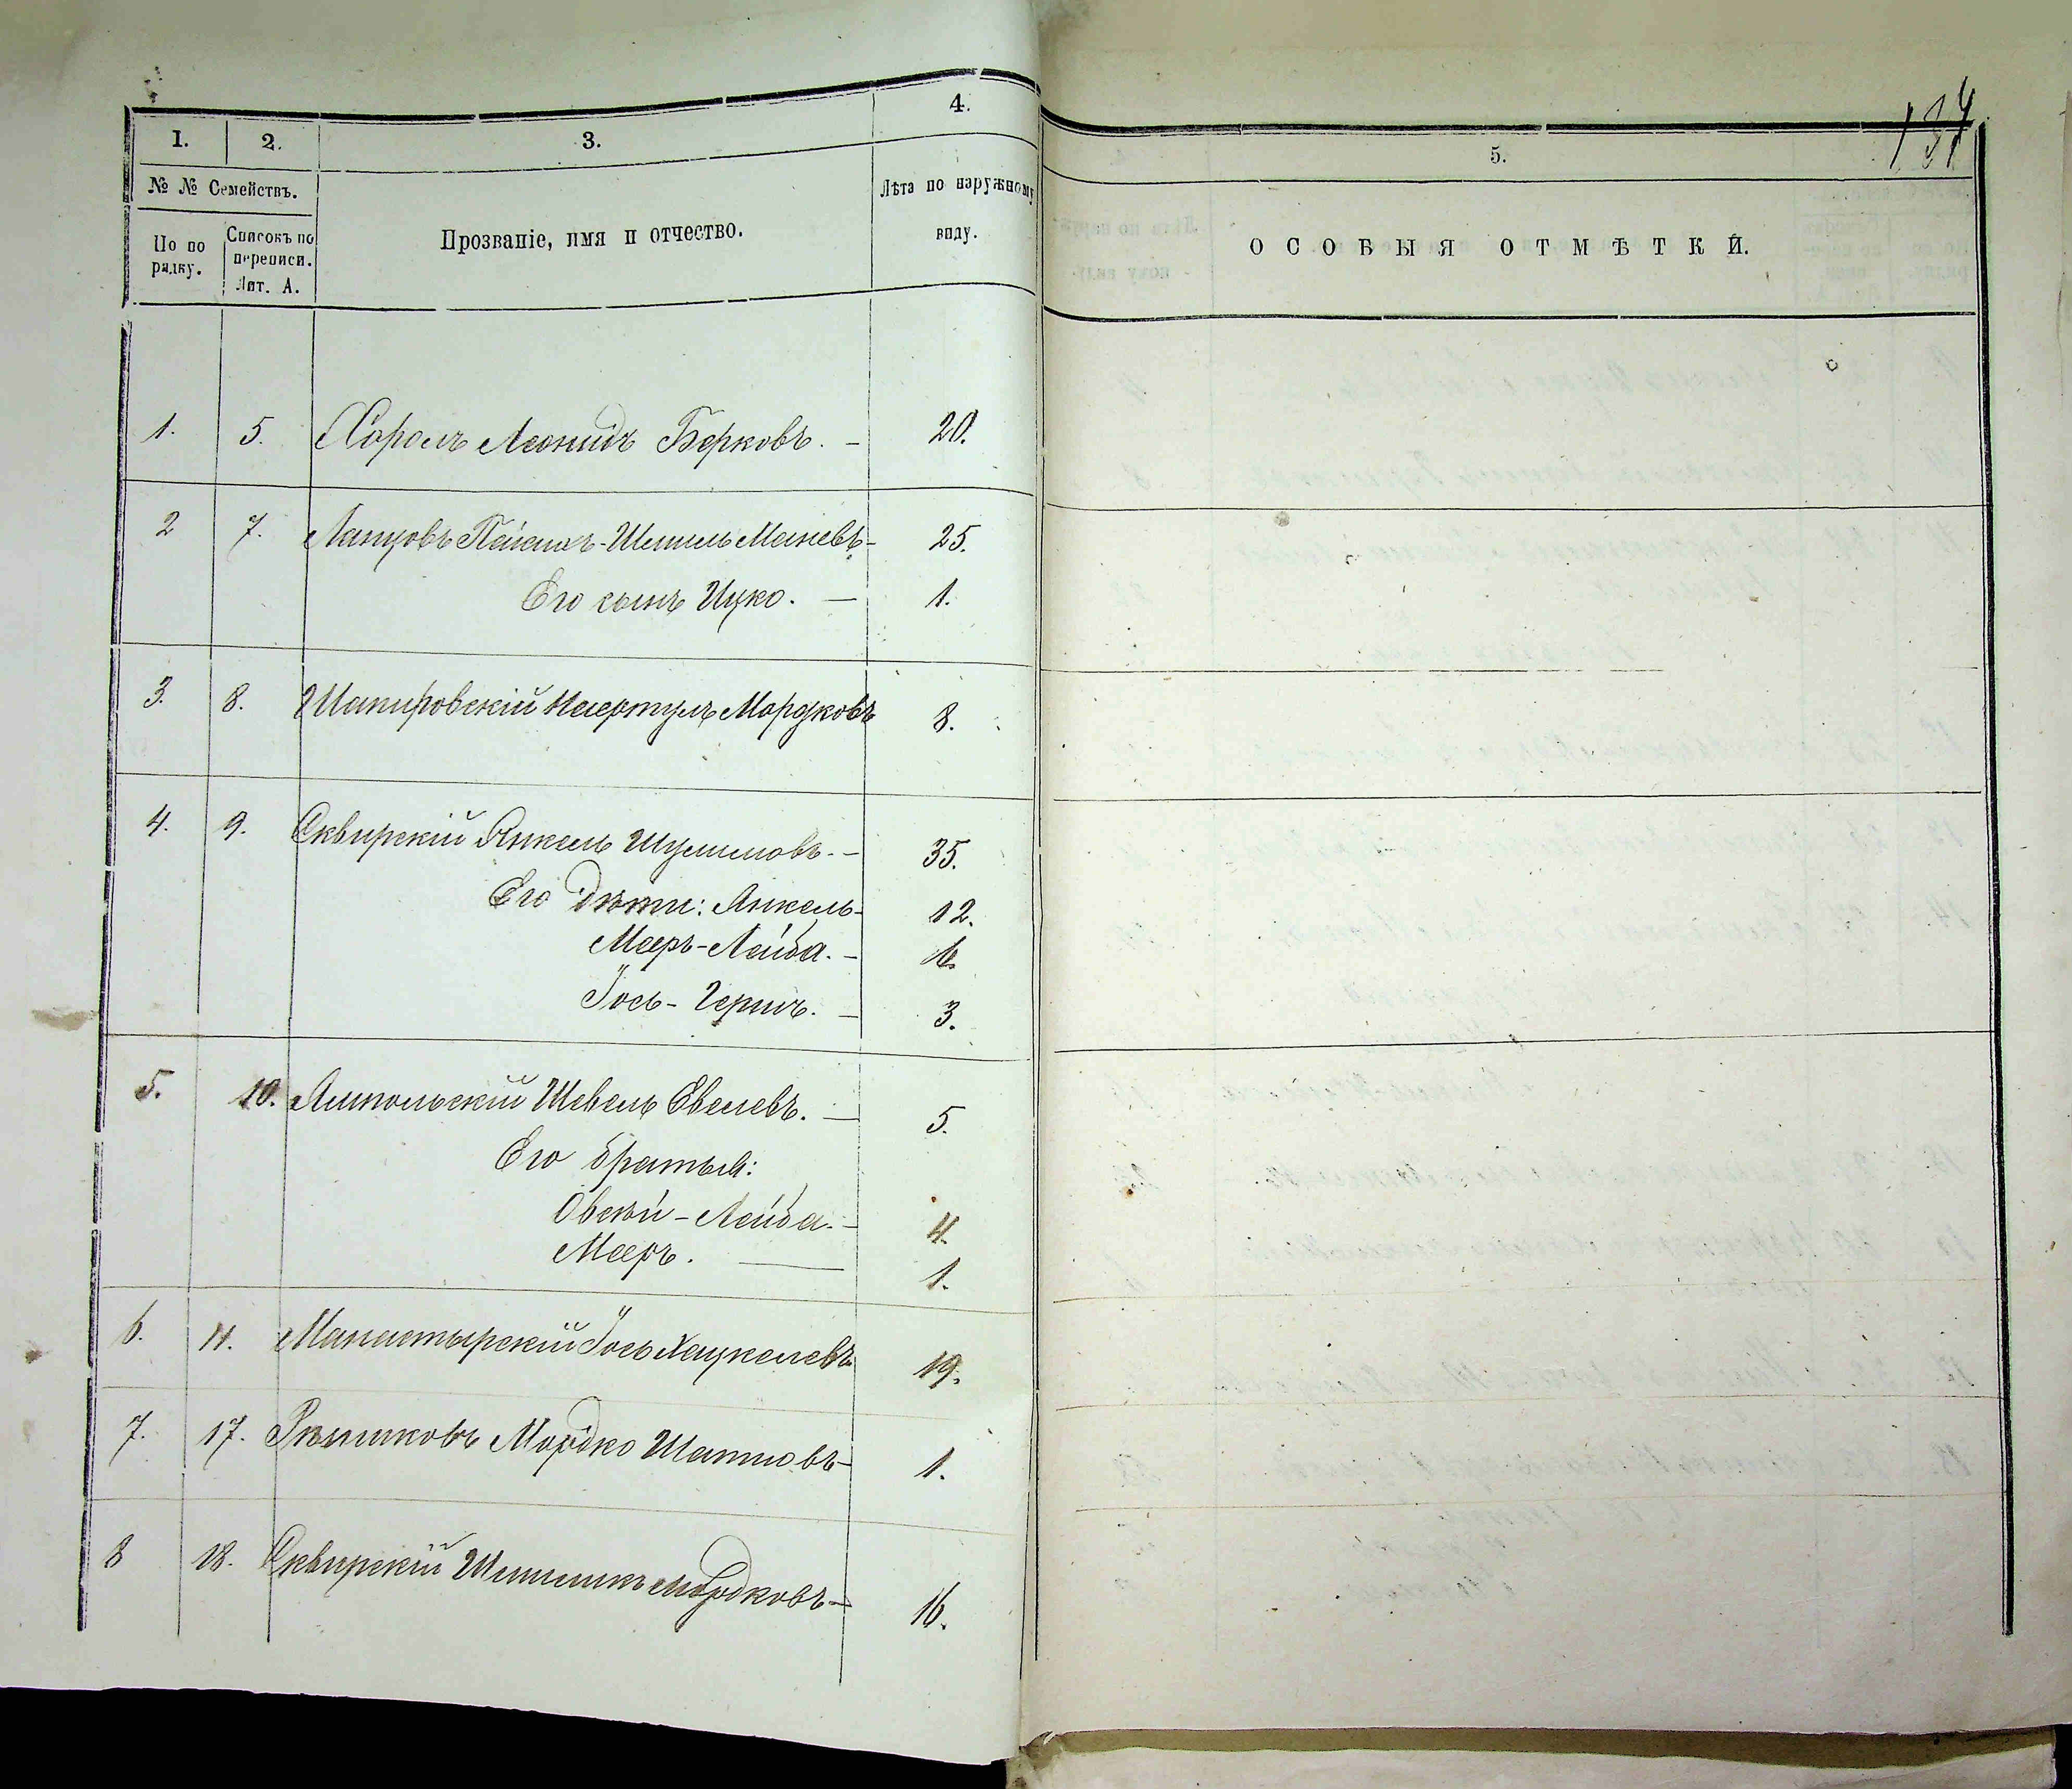 134
1. 2. 3. 4. 5.
№ № Семействъ.
По по рядку.
Списокъ по переписи. Лит. А.
Прозваніе, имя и отчество.
Лѣта по наружному виду.
ОСОБЫЯ ОТМѢТКИ.
1. 5. Хоролъ Леонидъ Берковъ. — 20.
2 7. Лапцовъ Пейсахъ-Шмиль Маневъ — 25.
Его сынъ Ицко. — 1.
3. 8. Шапировскій Мордковъ 8.
4. 9. Сквирскій Янкель Шулимовъ. — 35.
Его Дѣти: Янкель — 12.
Мееръ-Лейба. — 6.
Іось-Гершъ. — 3.
5. 10. Ямпольскій Шевель Евелевъ. — 5.
Его братья:
Овсѣй-Лейба. — 4.
Мееръ. — 1.
6. 11. Манастырскій Іось Хацкелевъ 19.
7. 17. Рѣзниковъ Мордко — 1.
8 18. Сквирскій Шмиликъ Мордковъ — 16.